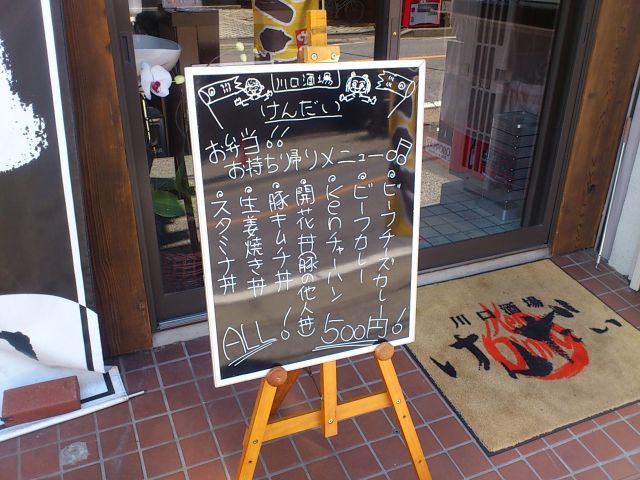 川口酒場
けんだい
お弁当!!
お持ち帰りメニュー
・ビーフチーズカレー
・ビーフカレー
・Kenチャーハン
・開花丼(豚の他人丼)
・豚キムチ丼
・生姜焼き丼
・スタミナ丼
ALL! 500円!
川口酒場
けんだい